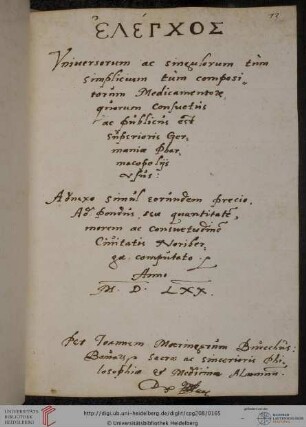 73
ἘΛΕΓΧΟΣ
Vniuersorum ac singulorum tùm
simplicium tùm composi
torùm Medicamentorũ
quorum Consuetus
ac publicus est
superioris Ger
maniæ Phar
macopolijs
vsus:
Adnexo simùl eorùndem precio
Ad pondus seu quantitatẽ
morem ac Consuetudinẽ
Ciuitatis Noriber
gæ computato
Anno
M. D. LXX.
Per Ioannem
Sacro ac sincerioris Phi
losophiæ et Medicinæ Alumnũ.
UNIVERSITÄTS-
BIBLIOTHEK
HEIDELBERG
http://digi.ub.uni-heidelberg.de/diglit/cpg268/0165
© Universitätsbibliothek Heidelberg